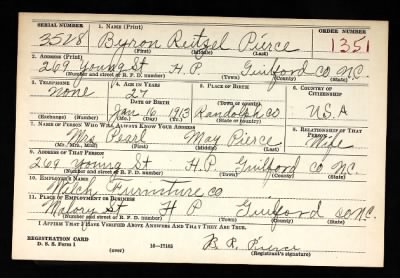 SERIAL NUMBER 1. NAME (Print) ORDER NUMBER
3528 Byron Reitzel Pierce 1351
(First) (Middle) (Last)
2. ADDRESS (Print)
269 Young St H.P. Guilford Co N.C.
(Number and street or R. F. D. number) (Town) (County) (State)
3. TELEPHONE 4. AGE IN YEARS 5. PLACE OF BIRTH 6. COUNTRY OF CITIZENSHIP
None 27
DATE OF BIRTH Randolph Co U.S.A
Jan 16 1913
(Exchange) (Number) (Mo.) (Day) (Yr.) (State or country)
7. NAME OF PERSON WHO WILL ALWAYS KNOW YOUR ADDRESS 8. RELATIONSHIP OF THAT PERSON
Mrs Pearl May Pierce Wife
(Mr., Mrs., Miss) (First) (Middle) (Last)
9. ADDRESS OF THAT PERSON
269 Young St H P Guilford Co N.C.
(Number and street or R. F. D. number) (Town) (County) (State)
10. EMPLOYER'S NAME
Furniture Co
11. PLACE OF EMPLOYMENT OR BUSINESS
St H P Guilford Co N.C.
(Number and street or R. F. D. number) (Town) (County) (State)
I AFFIRM THAT I HAVE VERIFIED ABOVE ANSWERS AND THAT THEY ARE TRUE.
REGISTRATION CARD
D. S. S. Form 1 (over) 16—17105 B R Pierce
(Registrant's signature)